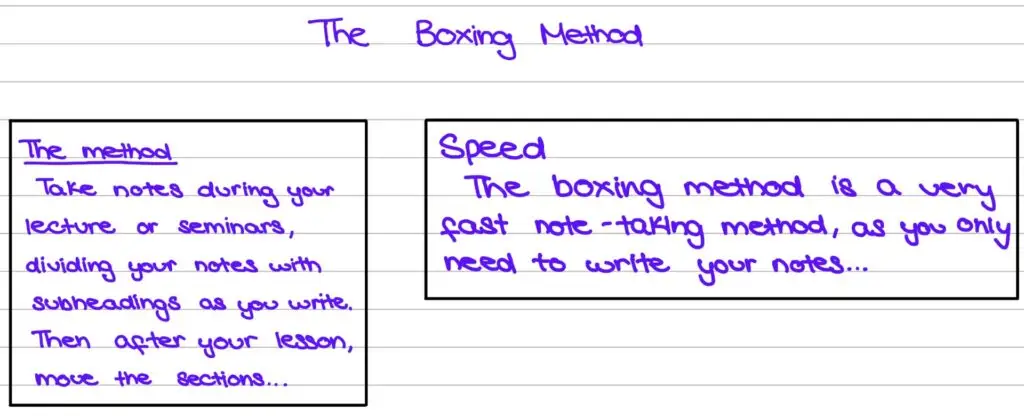 The Boxing Method
The method
Take notes during your
lecture or seminars,
dividing your notes with
subheadings as you write.
Then after your lesson,
move the sections...
Speed
The boxing method is a very
fast note-taking method, as you only
need to write your notes...